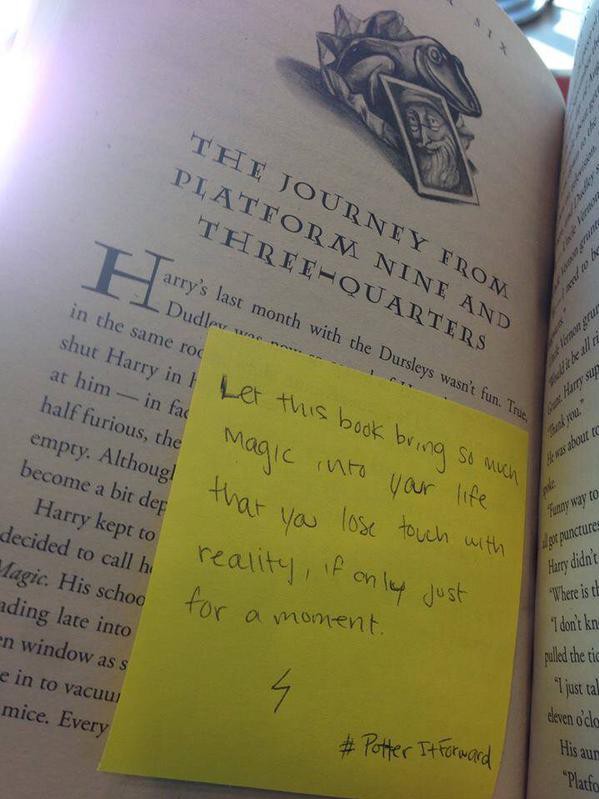 SIX
THE JOURNEY FROM
PLATFORM NINE AND
THREE-QUARTERS
Harry's last month with the Dursleys wasn't fun. True,
Dudley was now
in the same roo
shut Harry in
at him — in fac
half furious, the
empty. Althoug
become a bit dep
Harry kept to
decided to call h
Magic. His schoo
ading late into
en window as s
e in to vacuu
mice. Every
Let this book bring so much
magic into your life
that you lose touch with
reality, if only just
for a moment.
# Potter It Forward
Vernon grun
"Would it be all ri
Grunt. Harry sup
"Thank you."
He was about to
spoke.
"Funny way to
all got punctures
Harry didn't
"Where is th
"I don't kn
pulled the tic
"I just tal
eleven o'clo
His aun
"Platfo